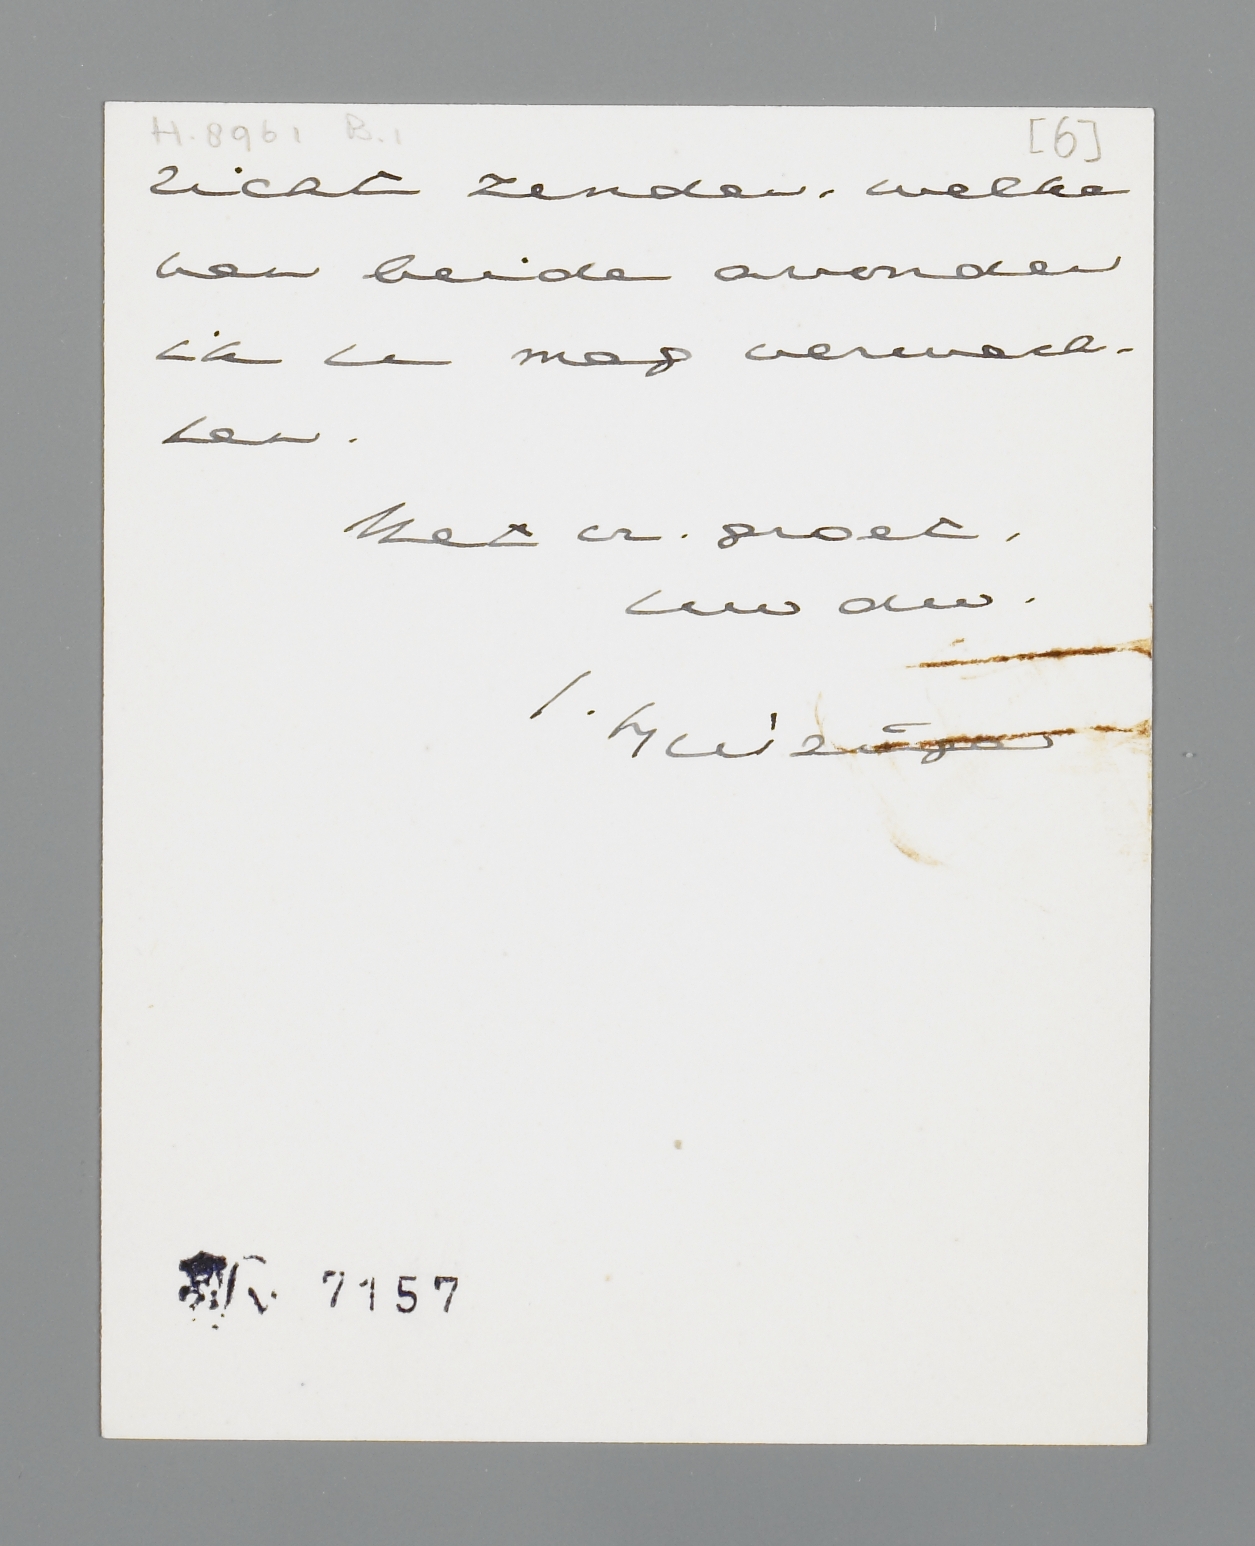 H. 8961 B.1 [6]
richt zenden, welke
van beide avonden
ik u mag verwach-
ten.
Met vr. groet,
uw dw.
J. Huizinga
7157